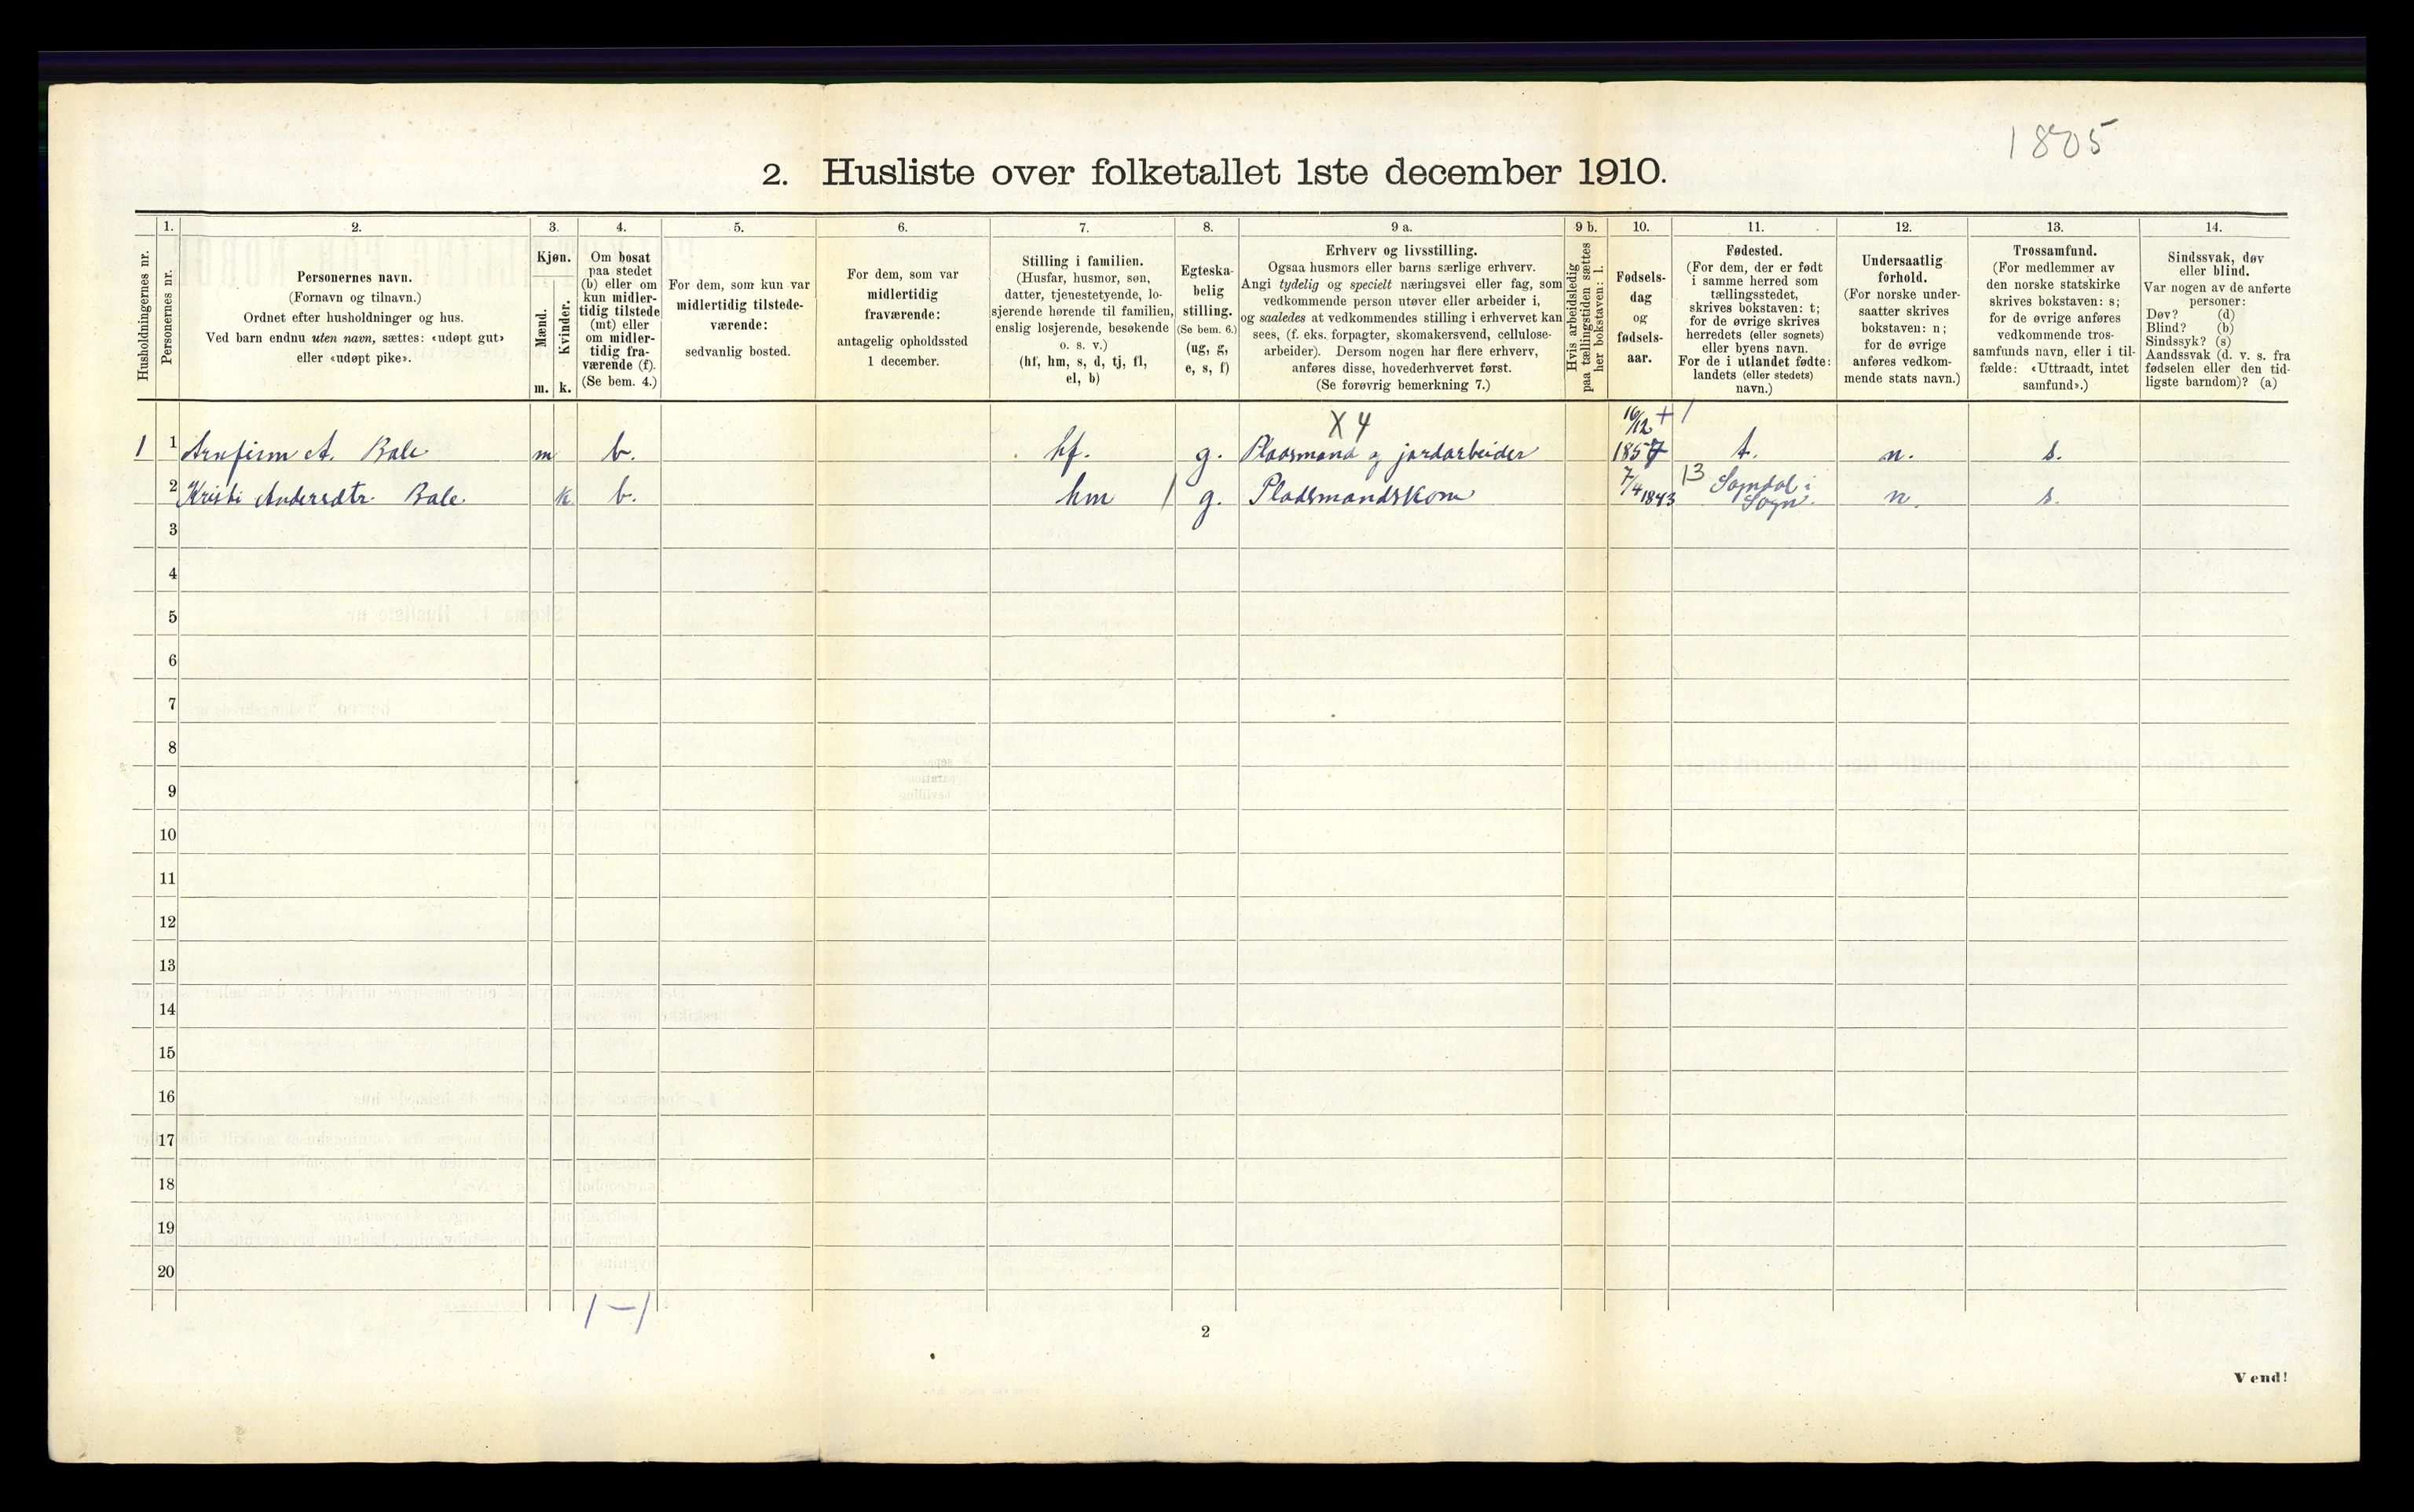 1805
2. Husliste over folketallet 1ste december 1910.
Husholdningernes nr.
1.
Personernes nr.
2.
Personernes navn.
(Fornavn og tilnavn.)
Ordnet efter husholdninger og hus.
Ved barn endnu uten navn, sættes: «udøpt gut»
eller «udøpt pike».
3.
Kjøn.
Mænd.
m.
Kvinder.
k.
4.
Om bosat
paa stedet
(b) eller om
kun midler-
tidig tilstede
(mt) eller
om midler-
tidig fra-
værende (f).
(Se bem. 4.)
5.
For dem, som kun var
midlertidig tilstede-
værende:
sedvanlig bosted.
6.
For dem, som var
midlertidig
fraværende:
antagelig opholdssted
1 december.
7.
Stilling i familien.
(Husfar, husmor, søn,
datter, tjenestetyende, lo-
sjerende hørende til familien,
enslig losjerende, besøkende
o. s. v.)
(hf, hm, s, d, tj, fl,
el, b)
8.
Egteska-
belig
stilling.
(Se bem. 6.)
(ug, g,
e, s, f)
9 a.
Erhverv og livsstilling.
Ogsaa husmors eller barns særlige erhverv.
Angi tydelig og specielt næringsvei eller fag, som
vedkommende person utøver eller arbeider i,
og saaledes at vedkommendes stilling i erhvervet kan
sees, (f. eks. forpagter, skomakersvend, cellulose-
arbeider). Dersom nogen har flere erhverv,
anføres disse, hovederhvervet først.
(Se forøvrig bemerkning 7.)
9 b.
Hvis arbeidsledig
paa tællingstiden sættes
her bokstaven: l.
10.
Fødsels-
dag
og
fødsels-
aar.
11.
Fødested.
(For dem, der er født
i samme herred som
tællingsstedet,
skrives bokstaven: t;
for de øvrige skrives
herredets (eller sognets)
eller byens navn.
For de i utlandet fødte:
landets (eller stedets)
navn.)
12.
Undersaatlig
forhold.
(For norske under-
saatter skrives
bokstaven: n;
for de øvrige
anføres vedkom-
mende stats navn.)
13.
Trossamfund.
(For medlemmer av
den norske statskirke
skrives bokstaven: s;
for de øvrige anføres
vedkommende tros-
samfunds navn, eller i til-
fælde: «Uttraadt, intet
samfund».)
14.
Sindssvak, døv
eller blind.
Var nogen av de anførte
personer:
Døv? (d)
Blind? (b)
Sindssyk? (s)
Aandssvak (d. v. s. fra
fødselen eller den tid-
ligste barndom)? (a)
X 4 16/12 + /
1 1 Arnfinn A. Bale m b. hf. g. Pladsmand og jordarbeider 1857 t. n. s.
2 Kristi Andersdtr. Bale k b. hm / g. Pladsmandskone 7/4 1843 13 Sogndal i Sogn. n. s.
3
4
5
6
7
8
9
10
11
12
13
14
15
16
17
18
19
20
1 — 1
2
Vend!